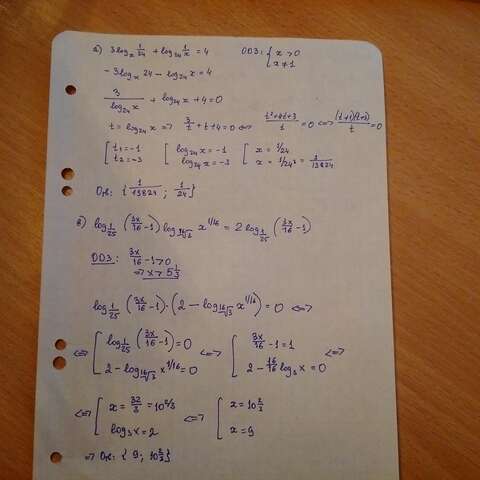 а) 3log_x 1/24 + log_24 1/x = 4 ОДЗ: { x > 0
x ≠ 1
- 3log_x 24 - log_24 x = 4
3/(log_24 x) + log_24 x + 4 = 0
t = log_24 x => 3/t + t + 4 = 0 <=> (t²+4t+3)/t = 0 <=> ((t+1)(t+3))/t = 0
[ t₁ = -1 [ log_24 x = -1 [ x = 1/24
t₂ = -3 log_24 x = -3 x = 1/24³ = 1/13824
Отв: { 1/13824 ; 1/24 }
в) log_{1/25} (3x/16 - 1) log_{16√3} x^{1/16} = 2 log_{1/25} (3x/16 - 1)
ОДЗ: 3x/16 - 1 > 0
=> x > 5 1/3
log_{1/25} (3x/16 - 1) · (2 - log_{16√3} x^{1/16}) = 0 <=>
<=> [ log_{1/25} (3x/16 - 1) = 0 <=> [ 3x/16 - 1 = 1 <=>
2 - log_{16√3} x^{1/16} = 0 2 - 16/16 log_3 x = 0
<=> [ x = 32/3 = 10 2/3 <=> [ x = 10 2/3
log_3 x = 2 x = 9
=> Отв: { 9; 10 2/3 }